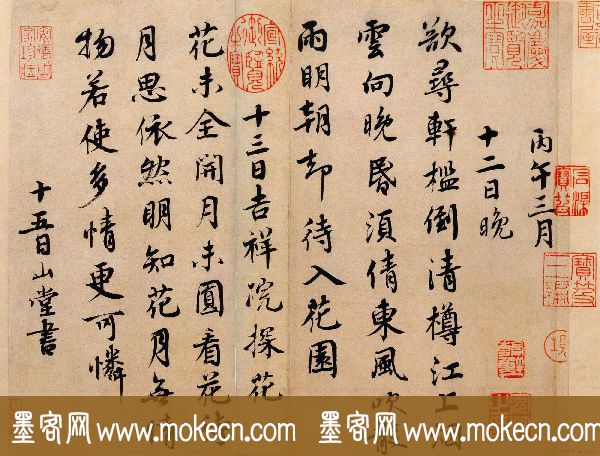 丙午三月
十二日晚
欲尋軒檻倒清樽江上煙
雲向晚昏須倩東風吹散
雨明朝却待入花園
十三日吉祥院探花
花未全開月未圓看花待
月思依然明知花月無情
物若使多情更可憐
十五日山堂書
嘉慶御覽之寶
宣統御覽之寶
墨客网 www.mokecn.com 墨客网 www.mokecn.com